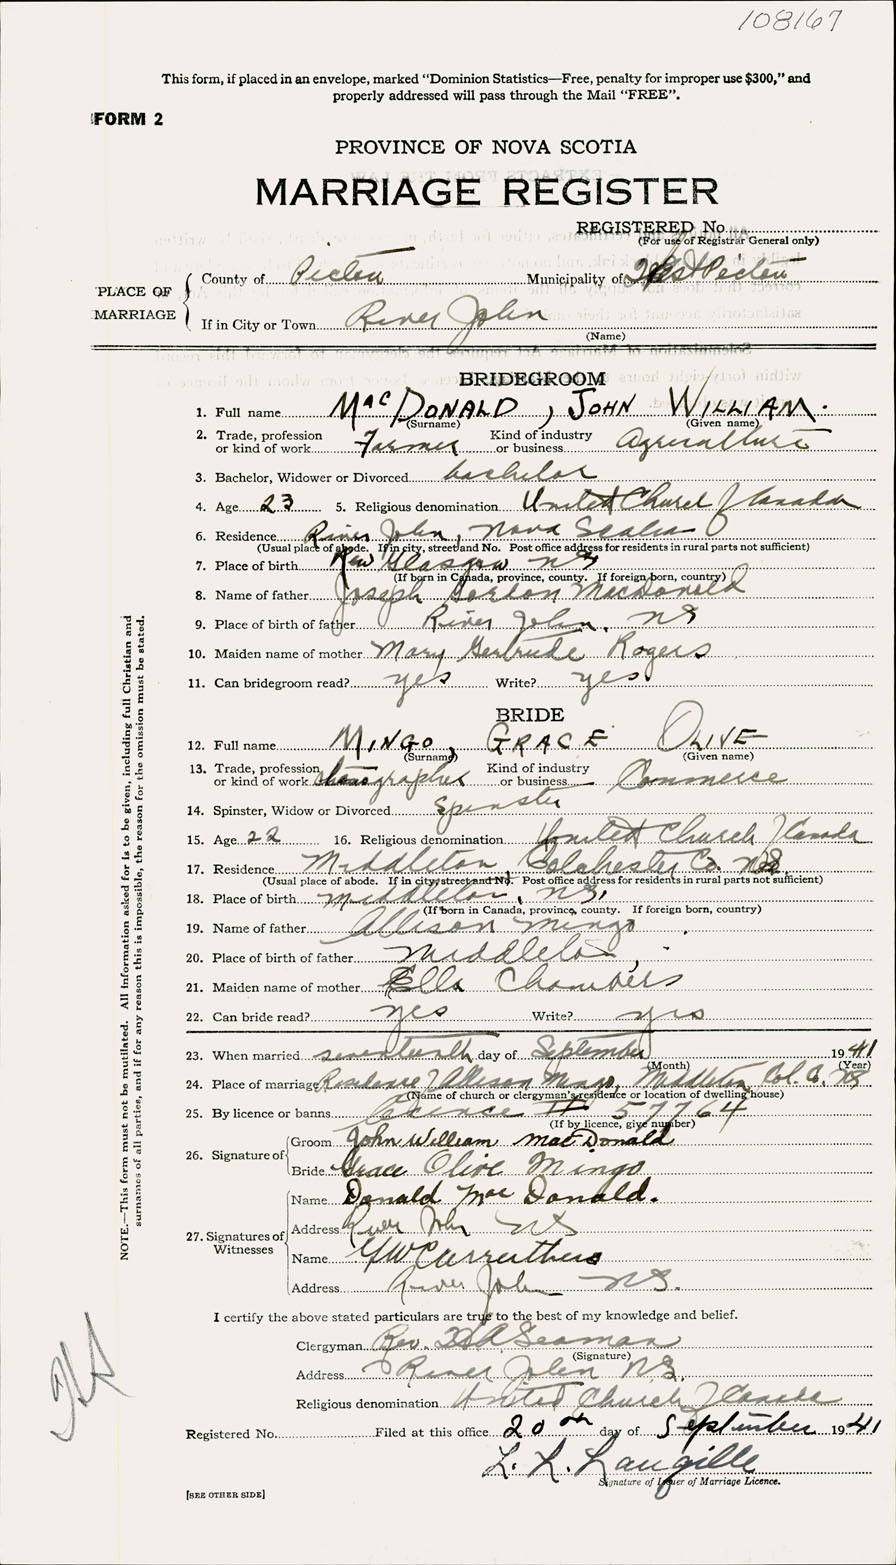 108167
This form, if placed in an envelope, marked “Dominion Statistics—Free, penalty for improper use $300,” and
properly addressed will pass through the Mail “FREE”.
FORM 2
PROVINCE OF NOVA SCOTIA
MARRIAGE REGISTER
REGISTERED No.
(For use of Registrar General only)
PLACE OF MARRIAGE
County of Pictou Municipality of West Pictou
If in City or Town River John
(Name)
BRIDEGROOM
1. Full name MacDONALD, JOHN WILLIAM.
(Surname) (Given name)
2. Trade, profession or kind of work Farmer Kind of industry or business Agriculture
3. Bachelor, Widower or Divorced bachelor
4. Age 23 5. Religious denomination United Church of Canada
6. Residence River John, Nova Scotia
(Usual place of abode. If in city, street and No. Post office address for residents in rural parts not sufficient)
7. Place of birth New Glasgow NS
(If born in Canada, province, county. If foreign born, country)
8. Name of father Joseph Gordon MacDonald
9. Place of birth of father River John, NS
10. Maiden name of mother Mary Gertrude Rogers
11. Can bridegroom read? yes Write? yes
BRIDE
12. Full name MINGO, GRACE OLIVE
(Surname) (Given name)
13. Trade, profession or kind of work stenographer Kind of industry or business Commerce
14. Spinster, Widow or Divorced Spinster
15. Age 22 16. Religious denomination United Church of Canada
17. Residence Middleton, Colchester Co. NS
(Usual place of abode. If in city, street and No. Post office address for residents in rural parts not sufficient)
18. Place of birth Middleton, NS,
(If born in Canada, province, county. If foreign born, country)
19. Name of father Allison Mingo
20. Place of birth of father Middleton,
21. Maiden name of mother Ella Chambers
22. Can bride read? yes Write? yes
23. When married seventeenth day of September 1941
(Month) (Year)
24. Place of marriage Residence of Allison Mingo, Middleton, Col. Co. NS
(Name of church or clergyman's residence or location of dwelling house)
25. By licence or banns Licence # 57764
(If by licence, give number)
26. Signature of
Groom John William MacDonald
Bride Grace Olive Mingo
27. Signatures of Witnesses
Name Donald MacDonald.
Address River John NS
Name Carruthers
Address River John NS.
I certify the above stated particulars are true to the best of my knowledge and belief.
Clergyman Rev. Seaman
(Signature)
Address River John NS.
Religious denomination United Church of Canada
Registered No. Filed at this office 20th day of September 1941
L. L. Langille
Signature of Issuer of Marriage Licence.
[SEE OTHER SIDE]
NOTE.—This form must not be mutilated. All information asked for is to be given, including full Christian and
surnames of all parties, and if for any reason this is impossible, the reason for the omission must be stated.